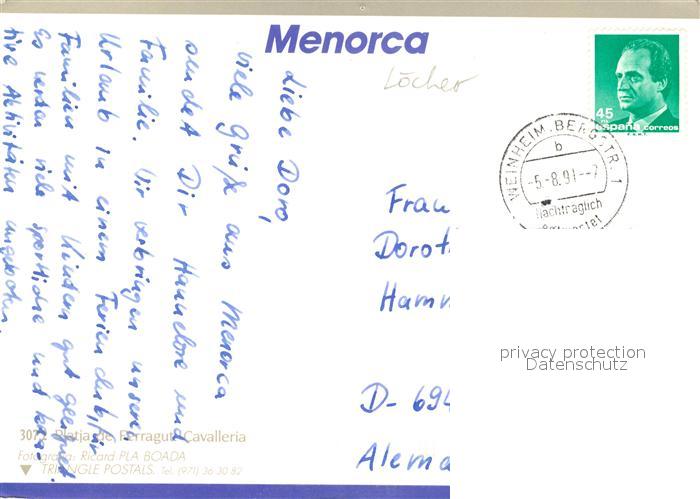 Menorca
Löcher
45
españa correos
WEINHEIM, BERGSTR. 1
b
-5.-8.91--7
Nachträglich
entwertet
Liebe Doro,
viele Grüße aus Menorca
sendet Dir Hannelore und
Familie. Wir verbringen unseren
Urlaub in einem Ferienclub, für
Familien mit Kindern gut geeignet.
Es werden viele sportliche und krea-
tive Aktivitäten angeboten.
Frau
Dorot
Hamm
D-694
Alema
privacy protection
Datenschutz
3072 Platja de Ferragut. Cavalleria
Fotografia: Ricard PLA BOADA
TRIANGLE POSTALS. Tel. (971) 36 30 82